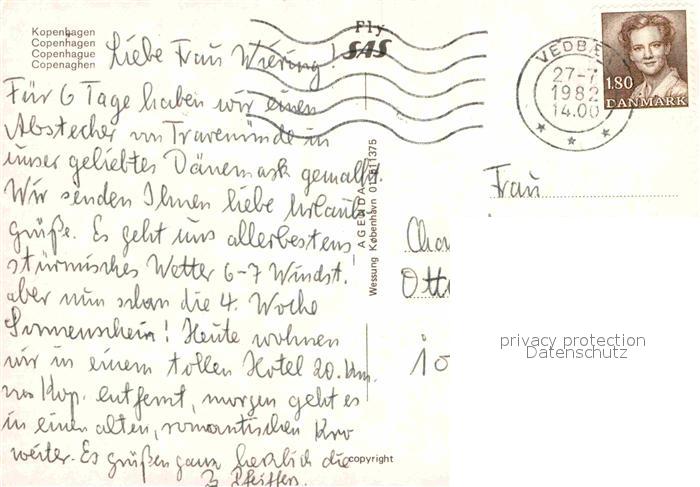 Kopenhagen
Copenhagen
Copenhague
Copenaghen
Fly
SAS
Liebe Frau Wiering!
Für 6 Tage haben wir einen
Abstecher von Travemünde in
unser geliebtes Dänemark gemacht.
Wir senden Ihnen liebe Urlaubs
grüße. Es geht uns allerbestens!
stürmisches Wetter 6-7 Windst.
aber nun schon die 4. Woche
Sonnenschein! Heute wohnen
wir in einem tollen Hotel 20. km.
von Kop. entfernt, morgen geht es
in einen alten, romantischen Kro
weiter. Es grüßen ganz herzlich die
Pfeiffers.
AGENDA
Wessung København 01-611375
VEDBÆ
27-7
1982
14.00
1.80
DANMARK
Frau
Cha
Otto
10
privacy protection
Datenschutz
copyright